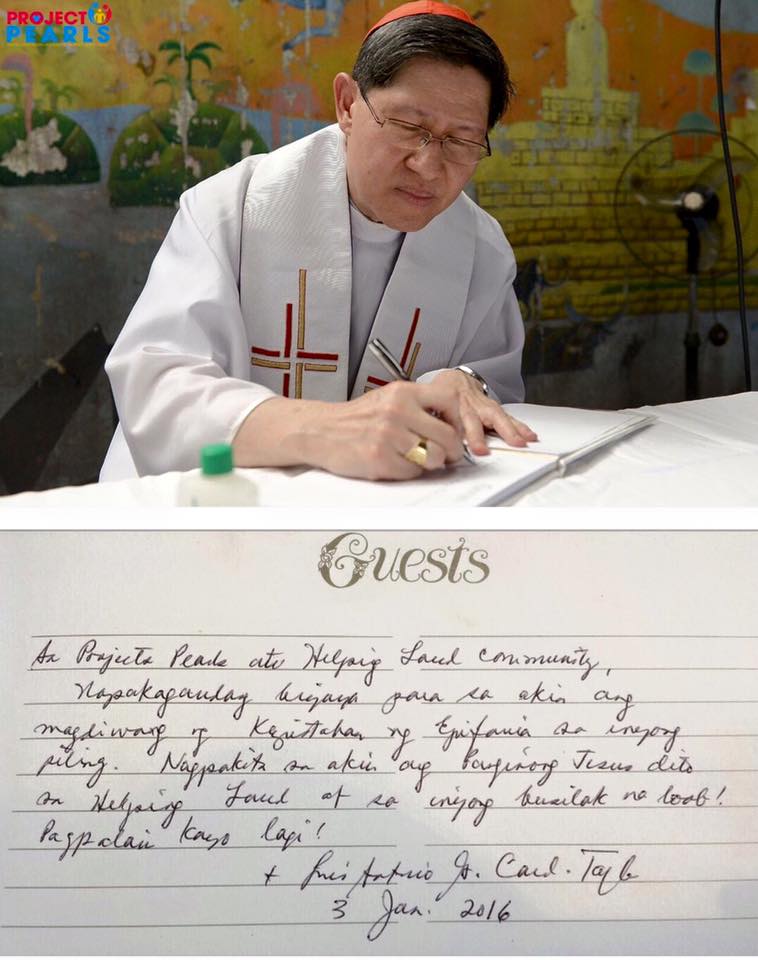 PROJECT
PEARLS
Guests
Sa Projects Pearls at Helping Land community,
Napakagandag biyaya para sa akin ang
magdiwang ng Kapistahan ng Epifania sa inyong
piling. Nagpakita sa akin ang Panginoong Jesus dito
sa Helping Land at sa inyong busilak na loob!
Pagpalain kayo lagi!
+ Luis Antonio G. Card. Tagle
3 Jan. 2016